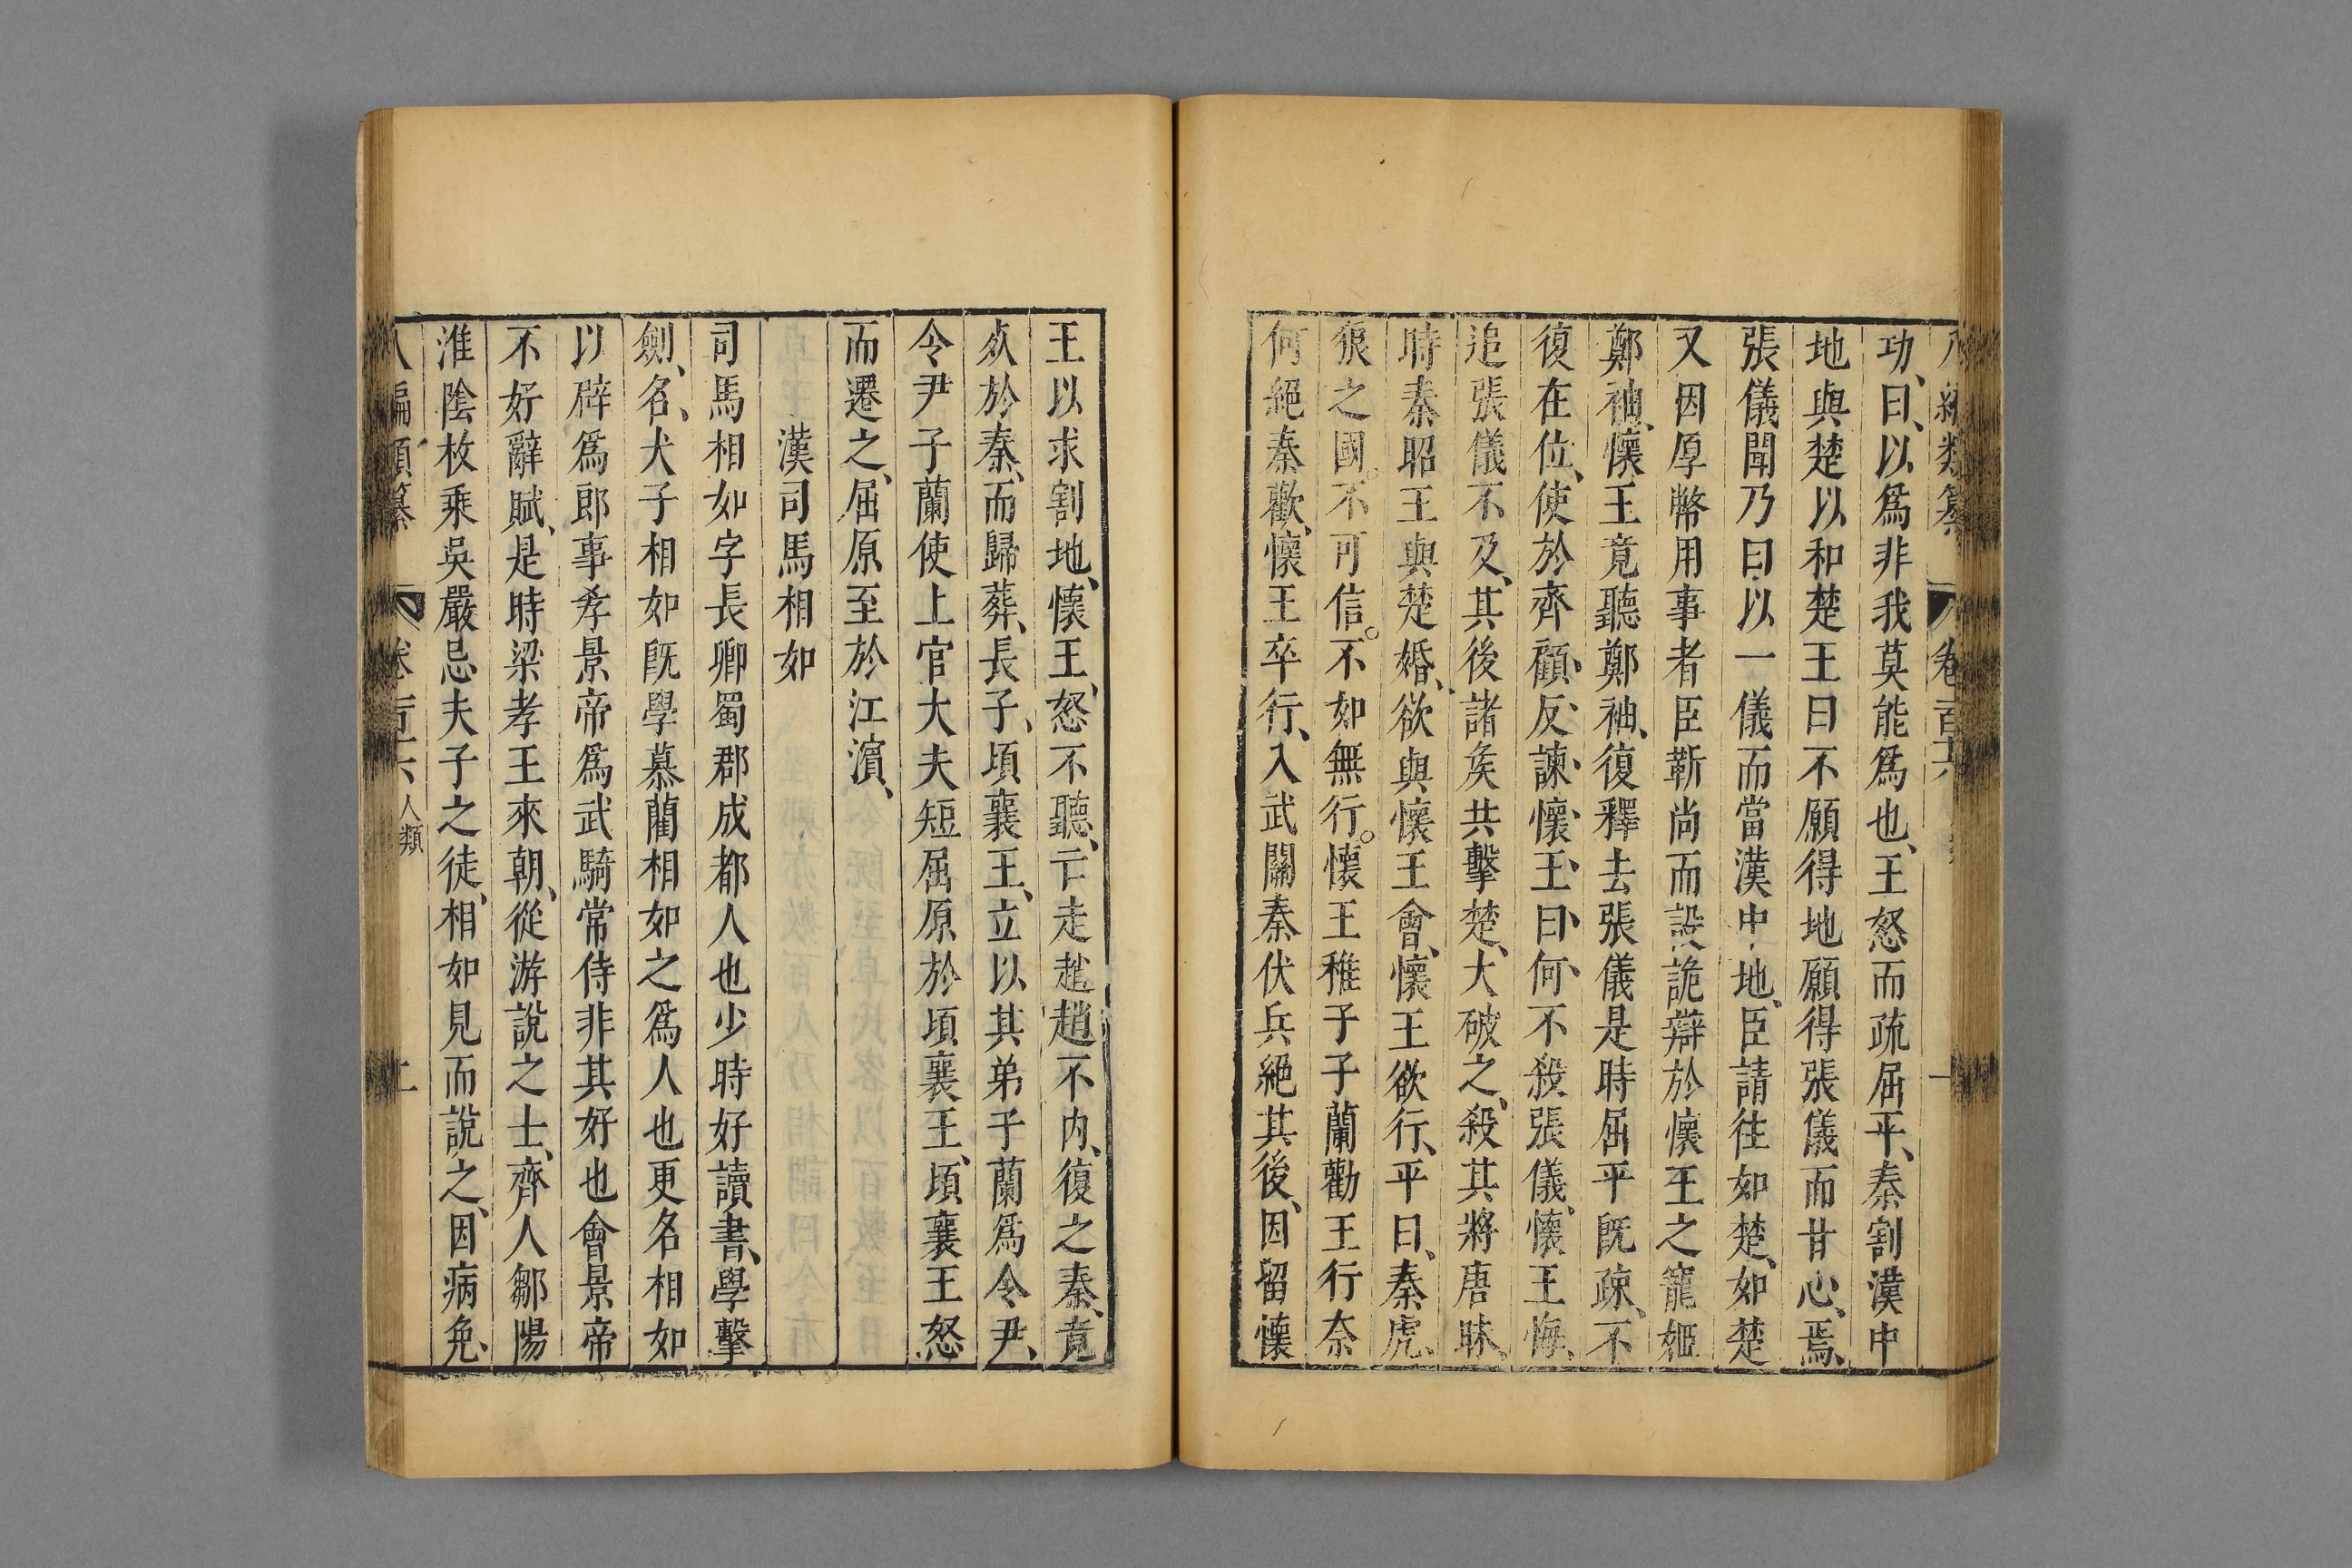 八編類纂 卷百六
功、曰、以爲非我莫能爲也、王怒而疏屈平、秦割漢中
地與楚以和楚王曰不願得地願得張儀而甘心、焉、
張儀聞乃曰以一儀而當漢中地、臣請往如楚、如楚
又因厚幣用事者臣靳尚而設詭辯於懷王之寵姬
鄭袖、懷王竟聽鄭袖、復釋去張儀是時屈平既疎、不
復在位、使於齊顧、反、諫、懷、王、曰、何、不殺張儀、懷王悔、
追張儀不及、其後諸矦共擊楚、大破之、殺其將唐昧、
時秦昭王與楚婚、欲與懷王會、懷王欲行、平曰、秦虎、
狼之國、不可信。不如無行。懷王稚子子蘭勸王行奈
何絕秦歡、懷王卒行、入武關秦伏兵絕其後、因留懷
王以求割地、懷王、怒不聽、亡走趙趙不内、復之秦、竟
死於秦、而歸葬、長子、頃襄王、立以其弟子蘭爲令尹、
令尹子蘭使上官大夫短屈原於頃襄王、頃襄王怒
而遷之、屈原至於江濱、
漢司馬相如
司馬相如字長卿蜀郡成都人也少時好讀書、學擊
劍、名、犬子相如既學慕藺相如之爲人也更名相如
以貲爲郎事孝景帝爲武騎常侍非其好也會景帝
不好辭賦、是時梁孝王來朝、從游說之士、齊人鄒陽
淮陰枚乘吳嚴忌夫子之徒、相如見而說之、因病免、
八編類纂 卷百六 人類 二